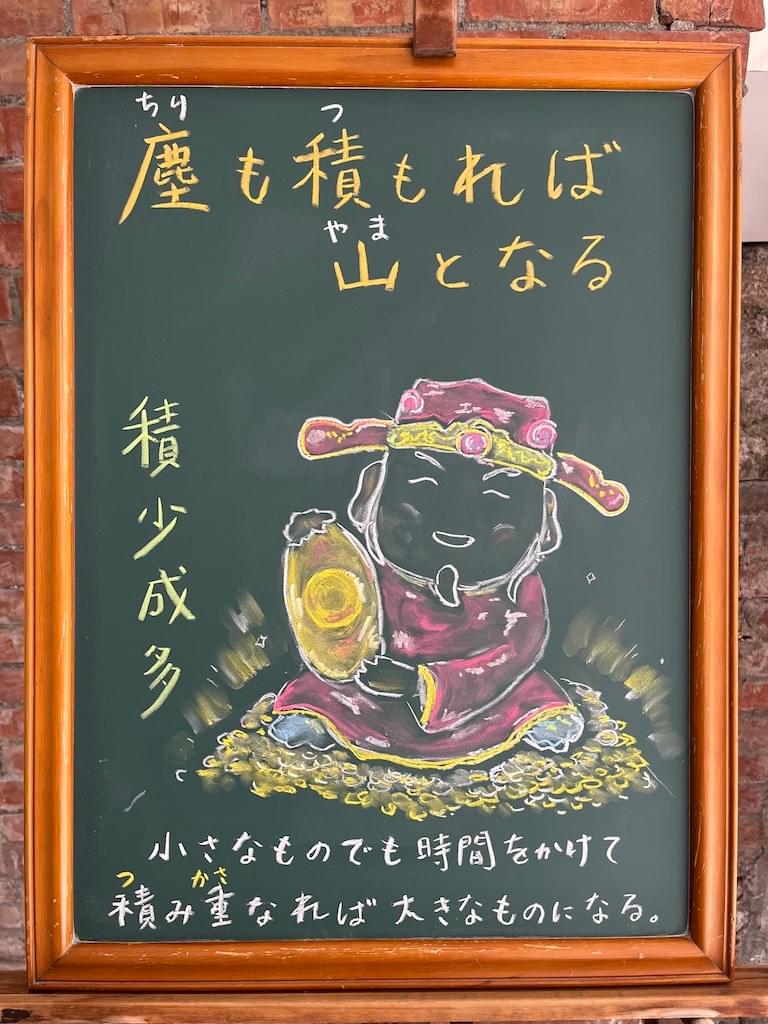 ちり つ
塵も積もれば
やま
山となる
積少成多
小さなものでも時間をかけて
つ かさ
積み重なれば大きなものになる。